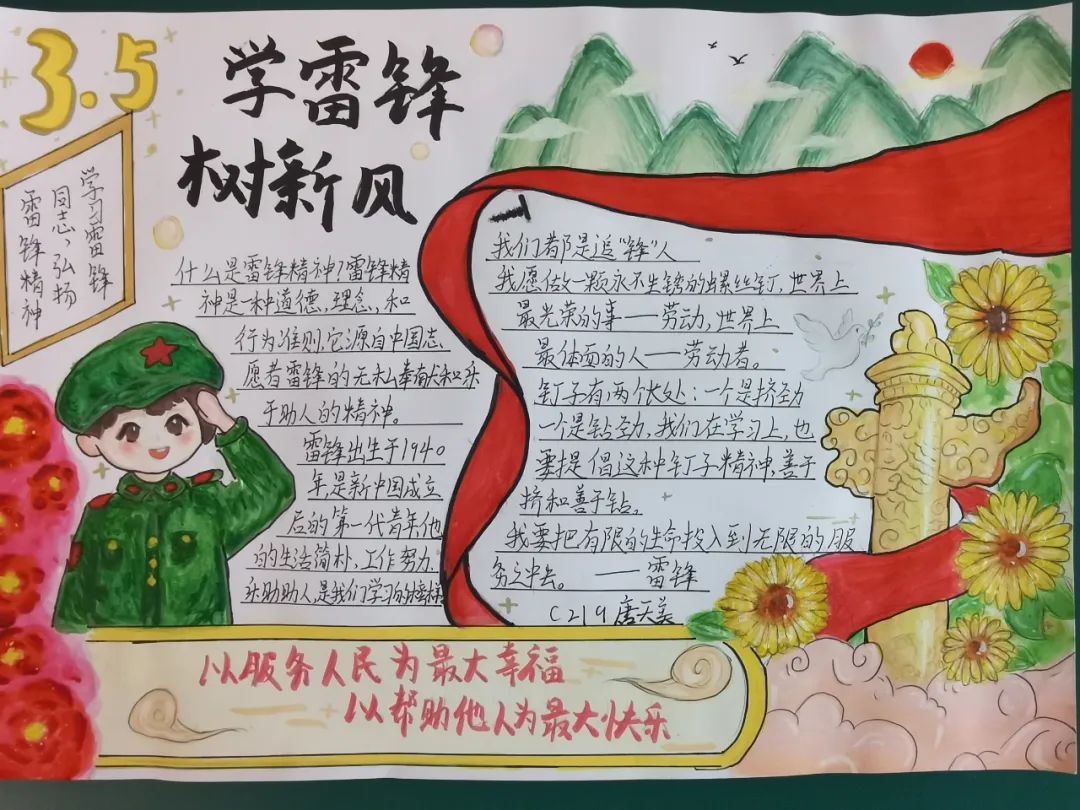 3.5
学雷锋
树新风
学习雷锋
同志，弘扬
雷锋精神
什么是雷锋精神？雷锋精
神是一种道德，理念，和
行为准则，它源自中国志
愿者雷锋的无私奉献和乐
于助人的精神。
雷锋出生于1940
年，是新中国成立
后的第一代青年他
的生活简朴，工作努力
乐助助人，是我们学习的榜样
我们都是追“锋”人
我愿做一颗永不生锈的螺丝钉，世界上
最光荣的事——劳动，世界上
最体面的人——劳动者。
钉子有两个长处：一个是挤劲
一个是钻劲，我们在学习上，也
要提倡这种钉子精神，善于
挤和善于钻，
我要把有限的生命投入到无限的服
务之中去。 ——雷锋
C219唐天美
以服务人民为最大幸福
以帮助他人为最大快乐